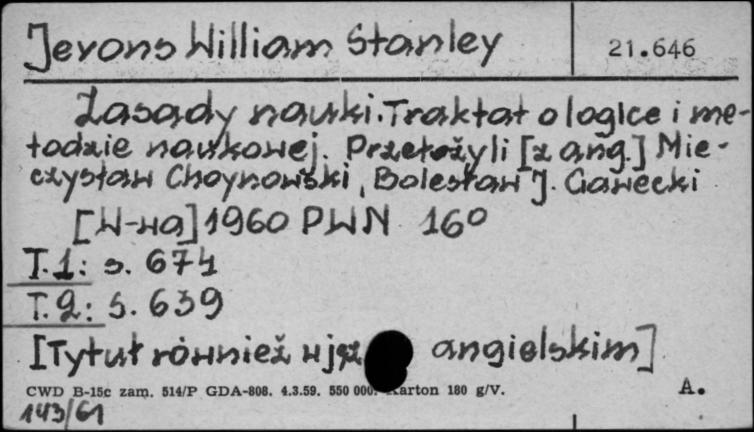 Jevons William Stanley 21.646
Zasady nauki. Traktat o logice i me-
todzie naukowej. Przełożyli [z ang.] Mie-
czysław Choynowski, Bolesław J. Gawecki
[W-wa] 1960 PWN 16°
T.1: s. 671
T.2: s. 639
[Tytuł również w jęz angielskim]
CWD B-15c zam. 514/P GDA-808. 4.3.59. 550 000. Karton 180 g/V. A.
143/61